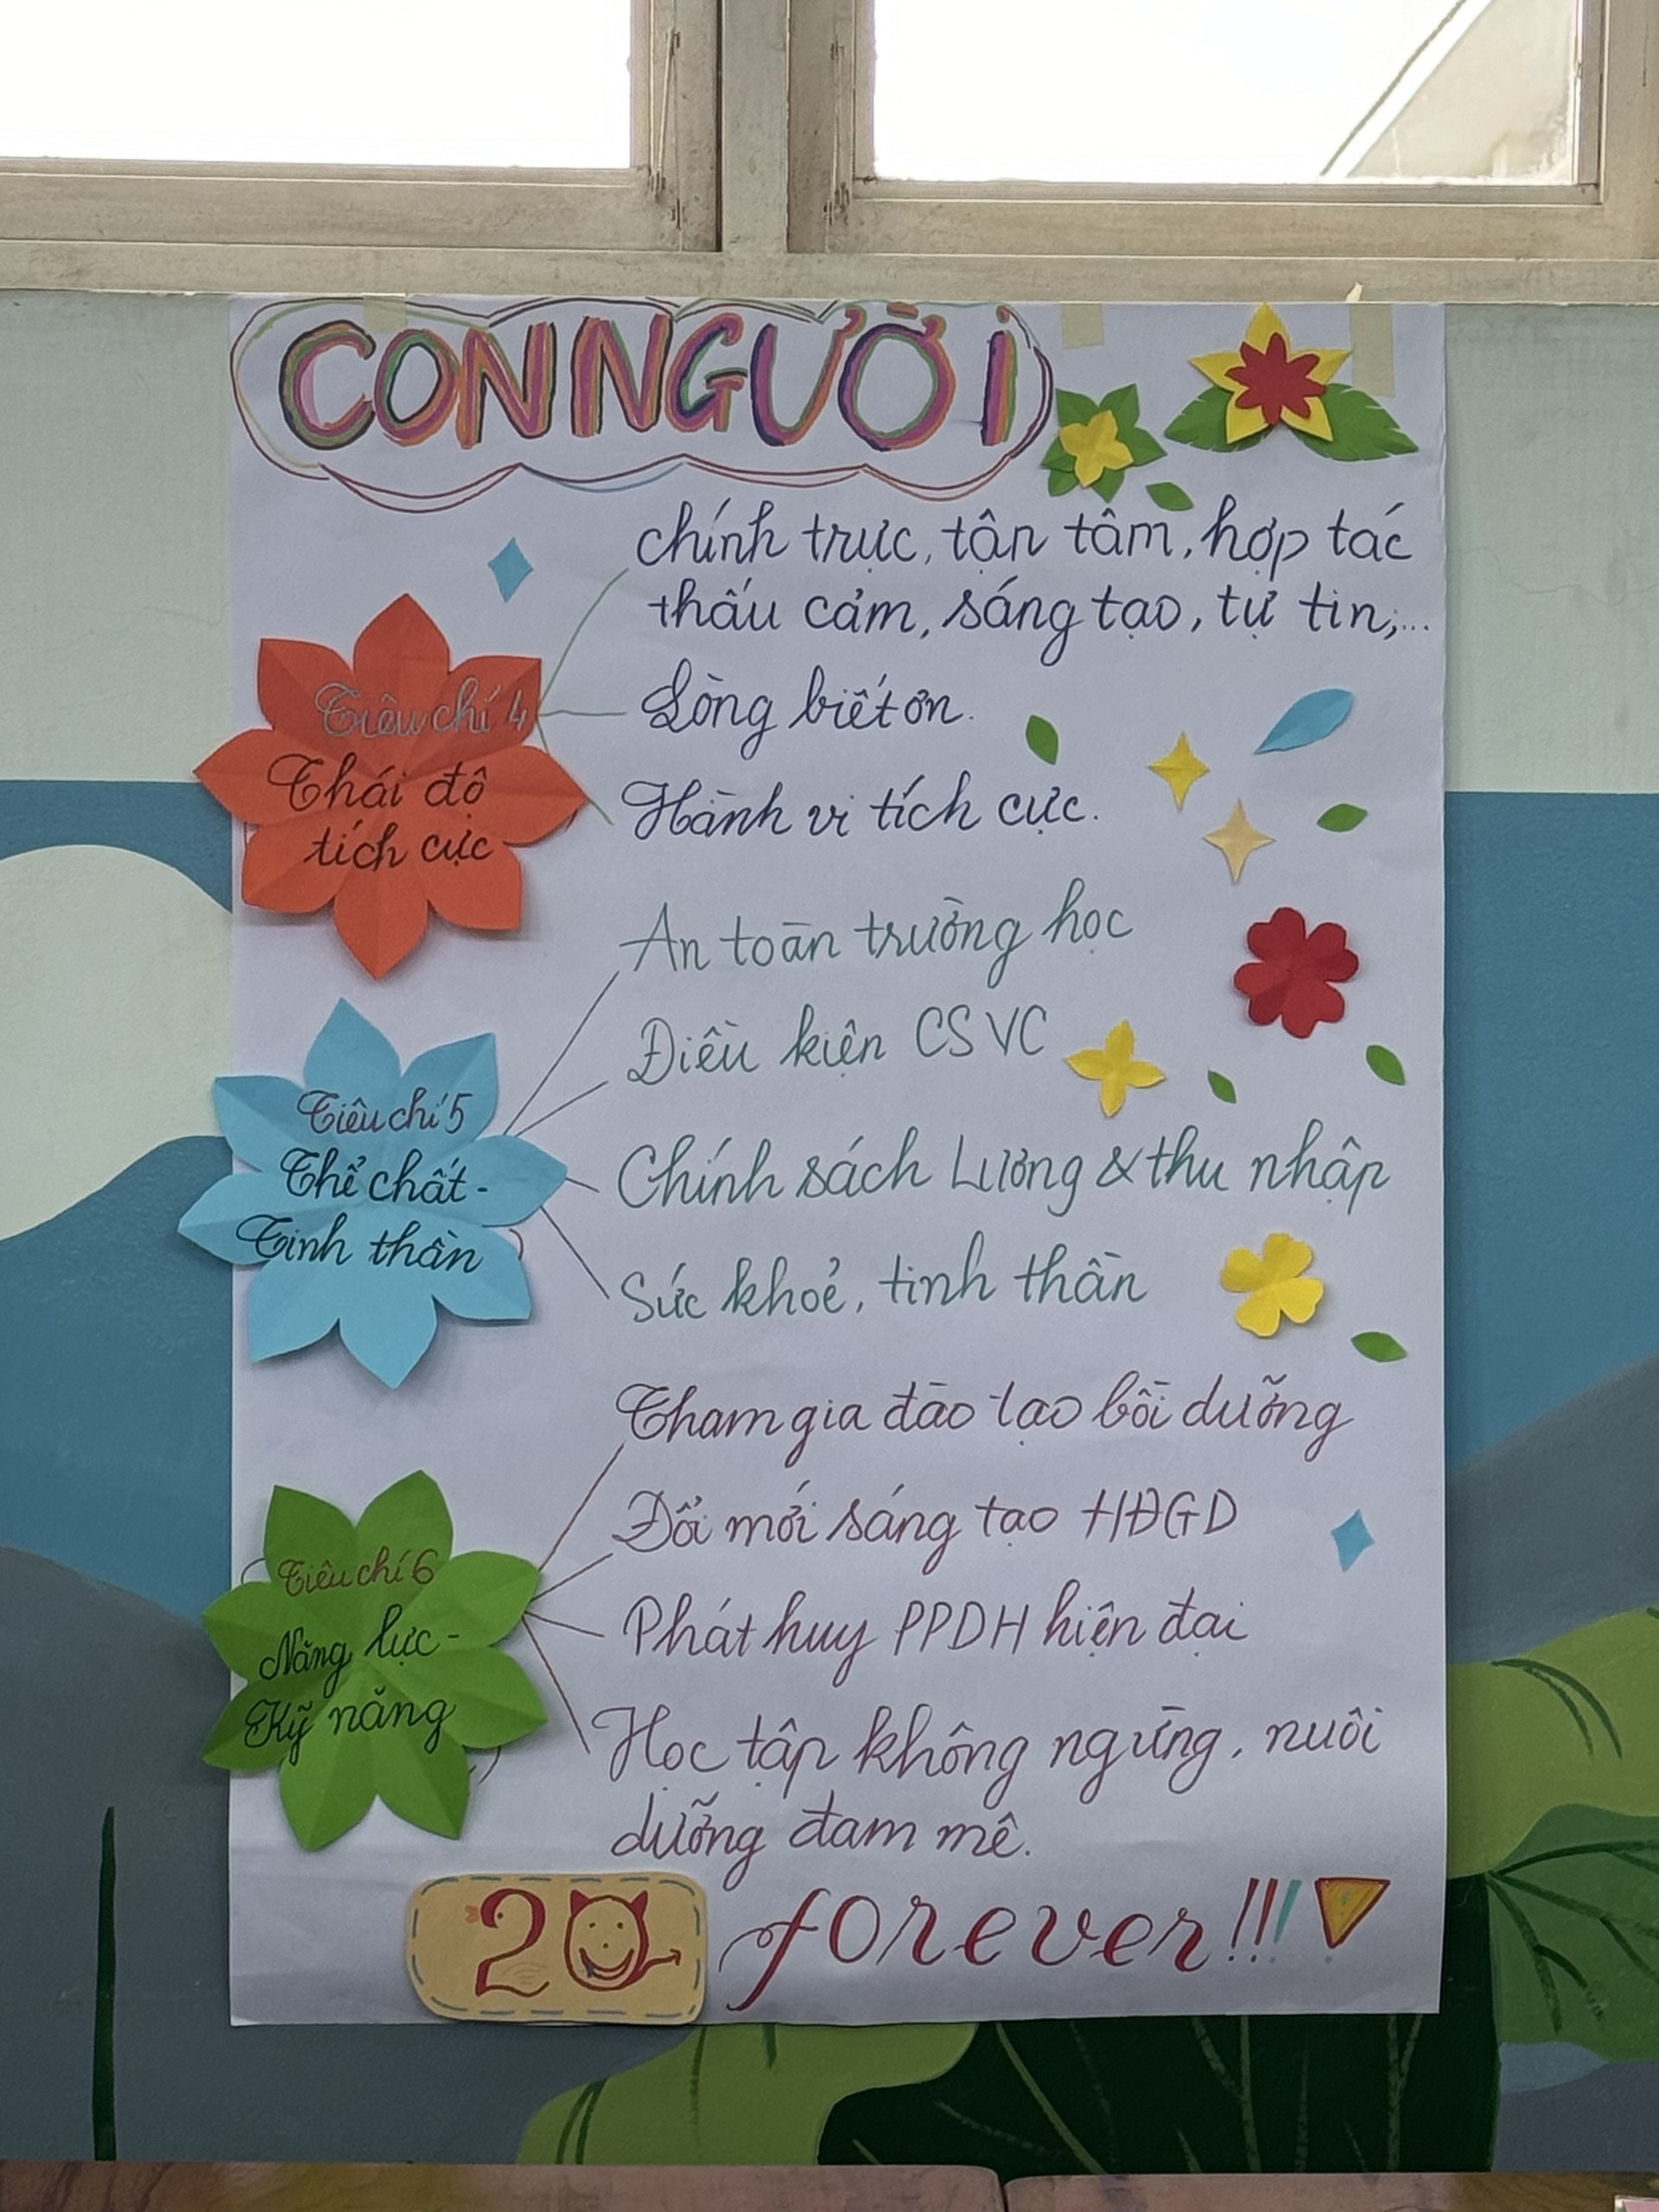 CON NGƯỜI
chính trực, tận tâm, hợp tác
thấu cảm, sáng tạo, tự tin,...
Lòng biết ơn.
Hành vi tích cực.
Tiêu chí 4
Thái độ
tích cực
An toàn trường học
Điều kiện CSVC
Chính sách Lương & thu nhập
Sức khoẻ, tinh thần
Tiêu chí 5
Thể chất -
Tinh thần
Tham gia đào tạo bồi dưỡng
Đổi mới sáng tạo HĐGD
Phát huy PPDH hiện đại
Học tập không ngừng, nuôi
dưỡng đam mê.
Tiêu chí 6
Năng lực -
Kỹ năng
20 forever!!!